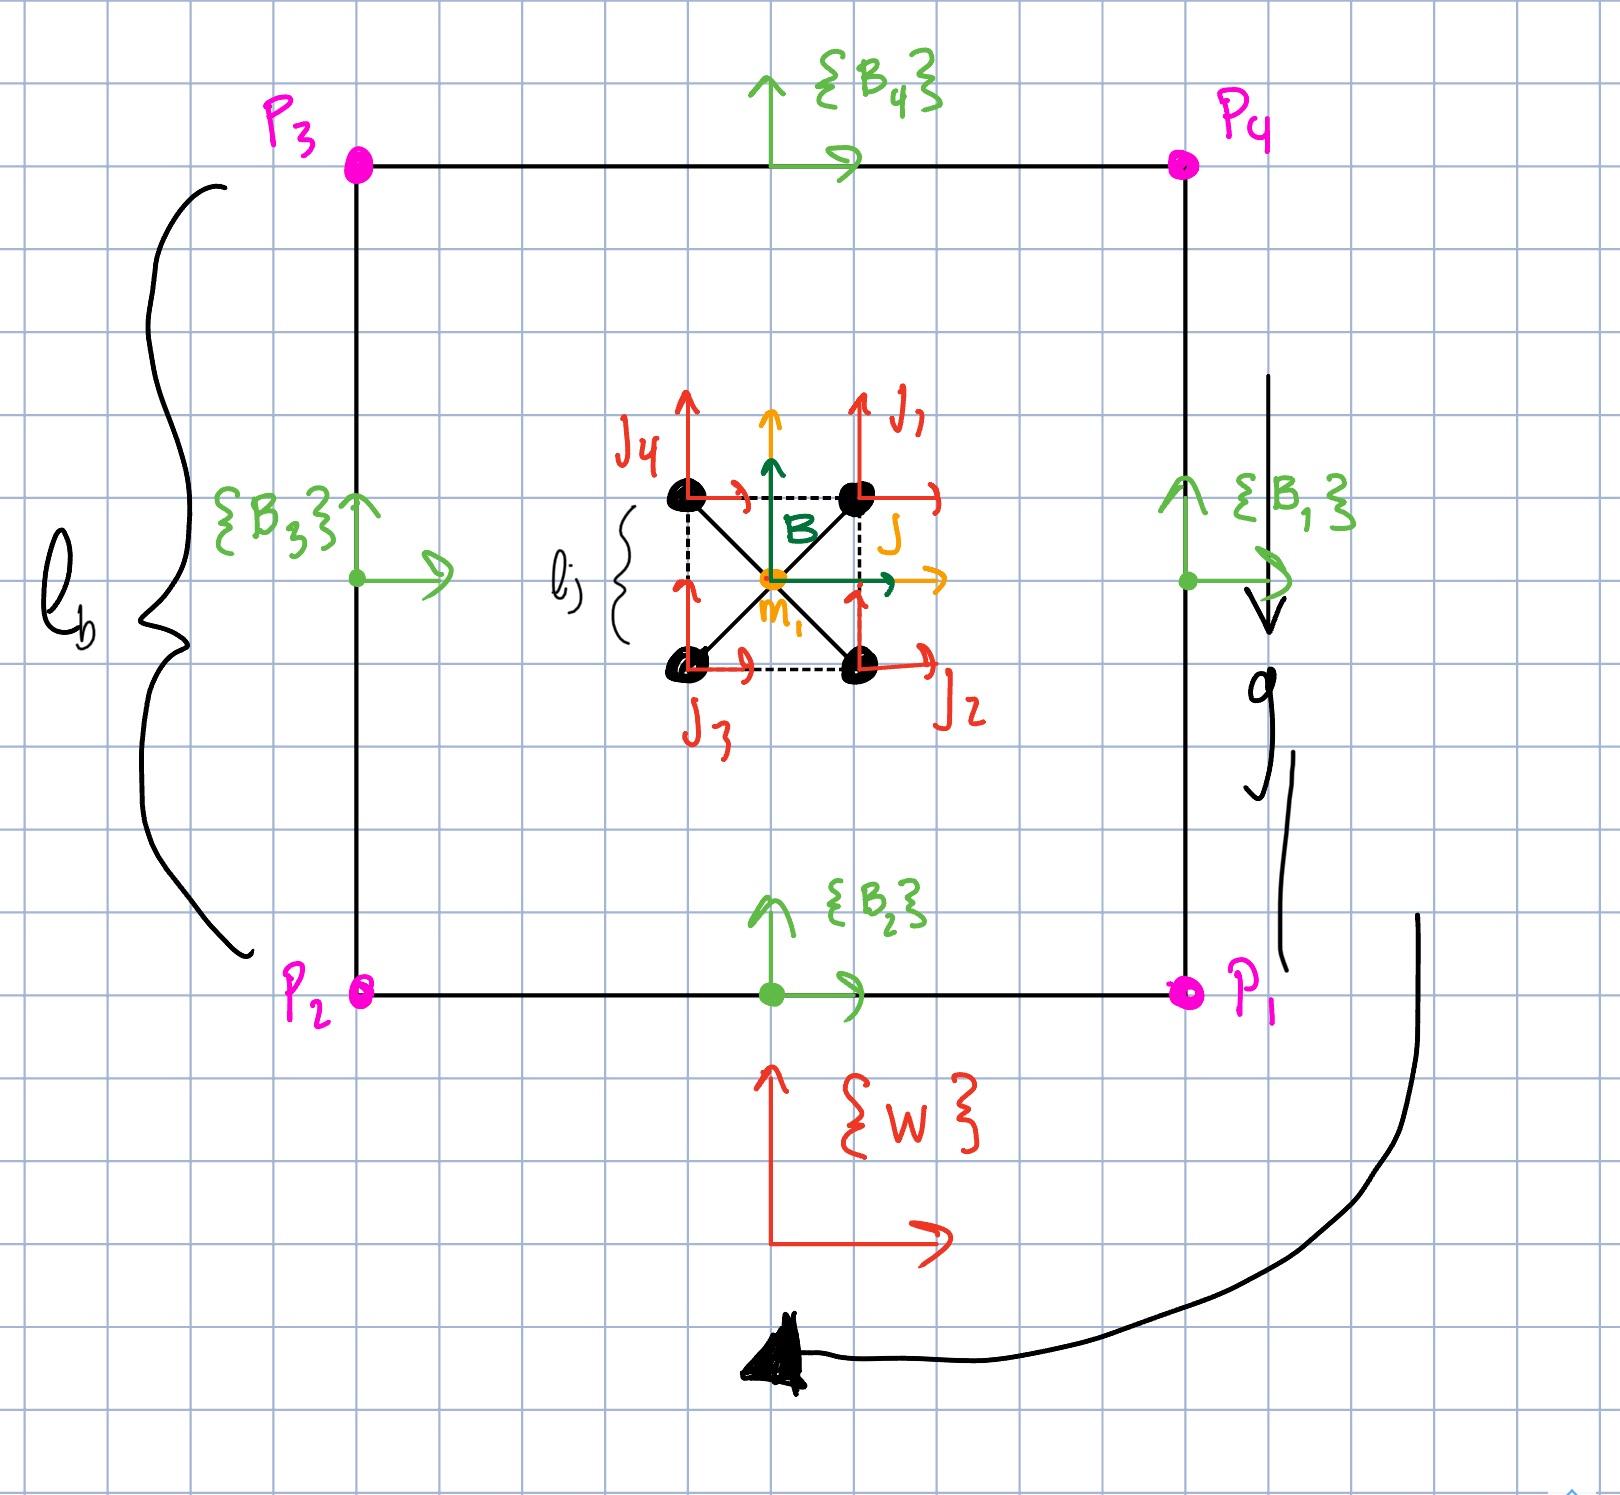 {B₄}
P₃
P₄
J₁
J₄
{B₃}
B
J
{B₁}
l_b
l_j
m₁
g
J₃
J₂
{B₂}
P₂
P₁
{W}